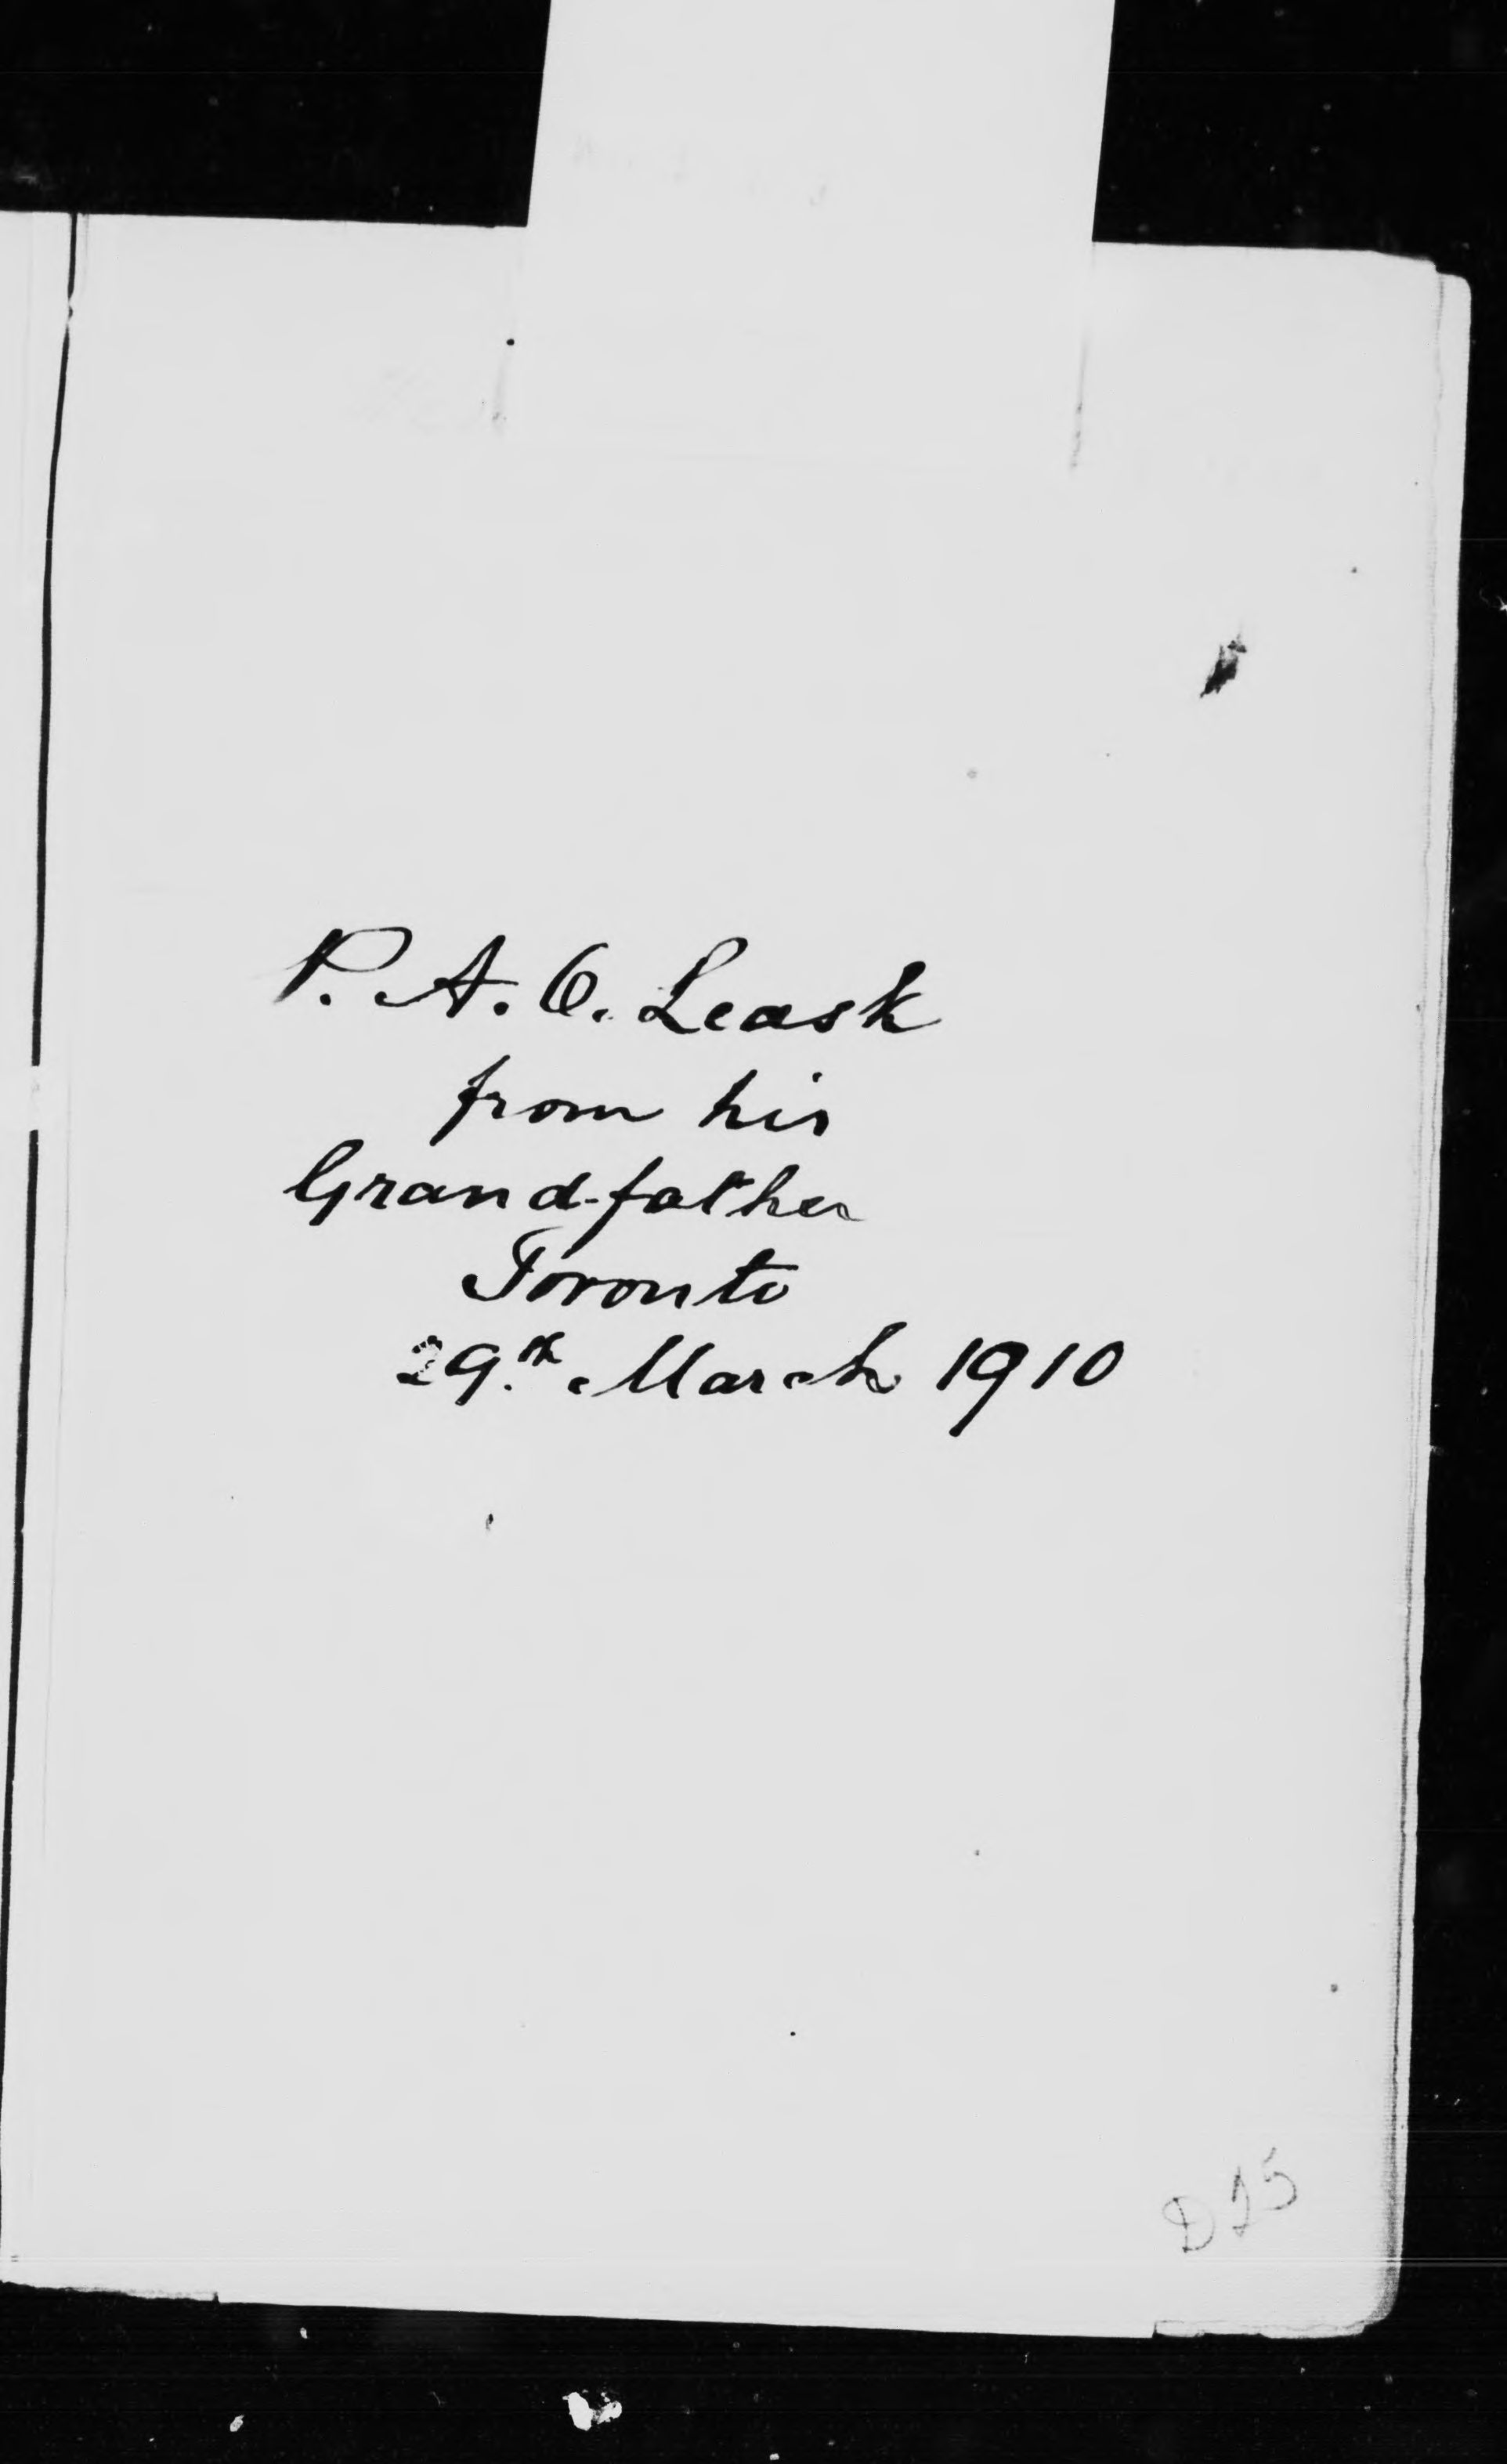 P. A. O. Leask
from his
Grand-father
Toronto
29.th March 1910
D25